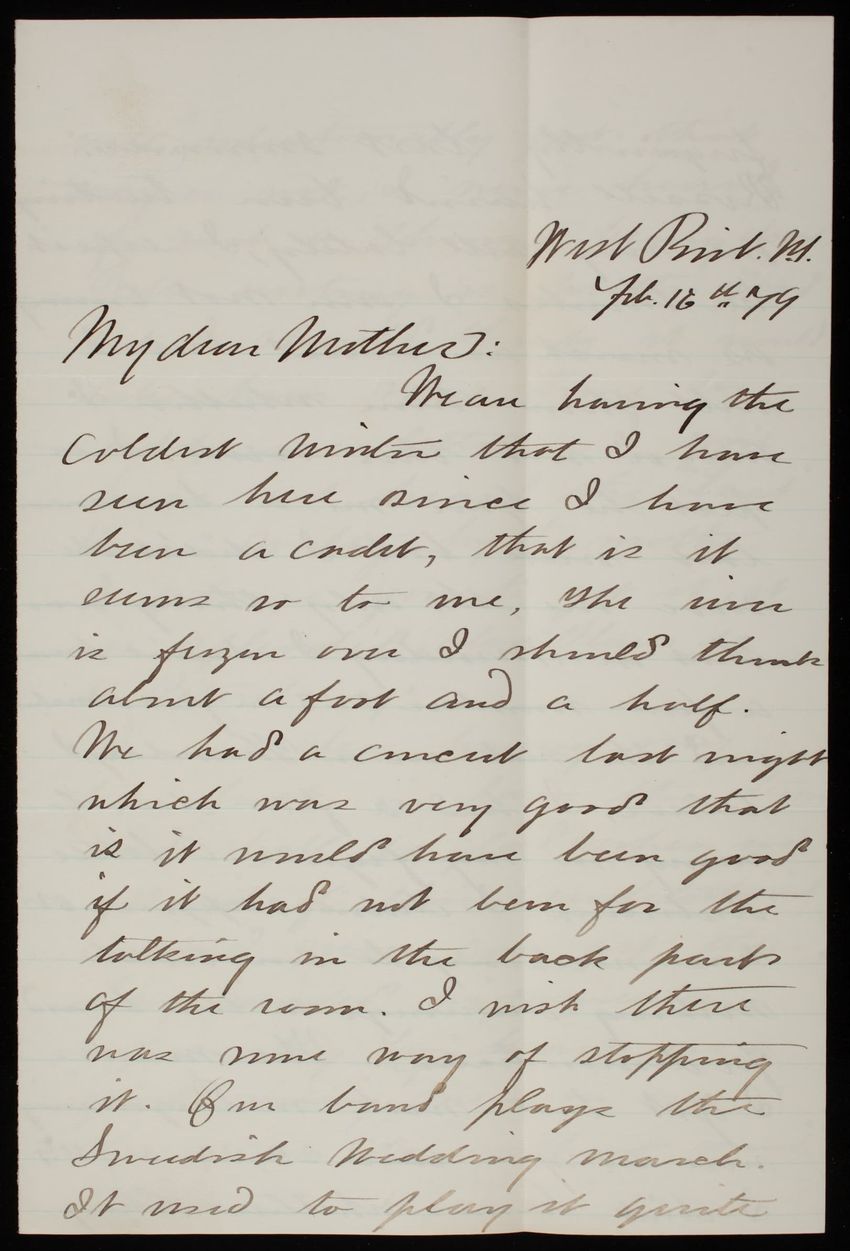 West Point. N.Y.
Feb. 16th "79
My dear Mother:
We are having the
coldest winter that I have
seen here since I have
been a cadet, that is it
seems so to me, The river
is frozen over I should think
about a foot and a half.
We had a concert last night
which was very good that
is it would have been good
if it had not been for the
talking in the back part
of the room. I wish there
was some way of stopping
it. Our band plays the
Swedish Wedding March.
It used to play it quite